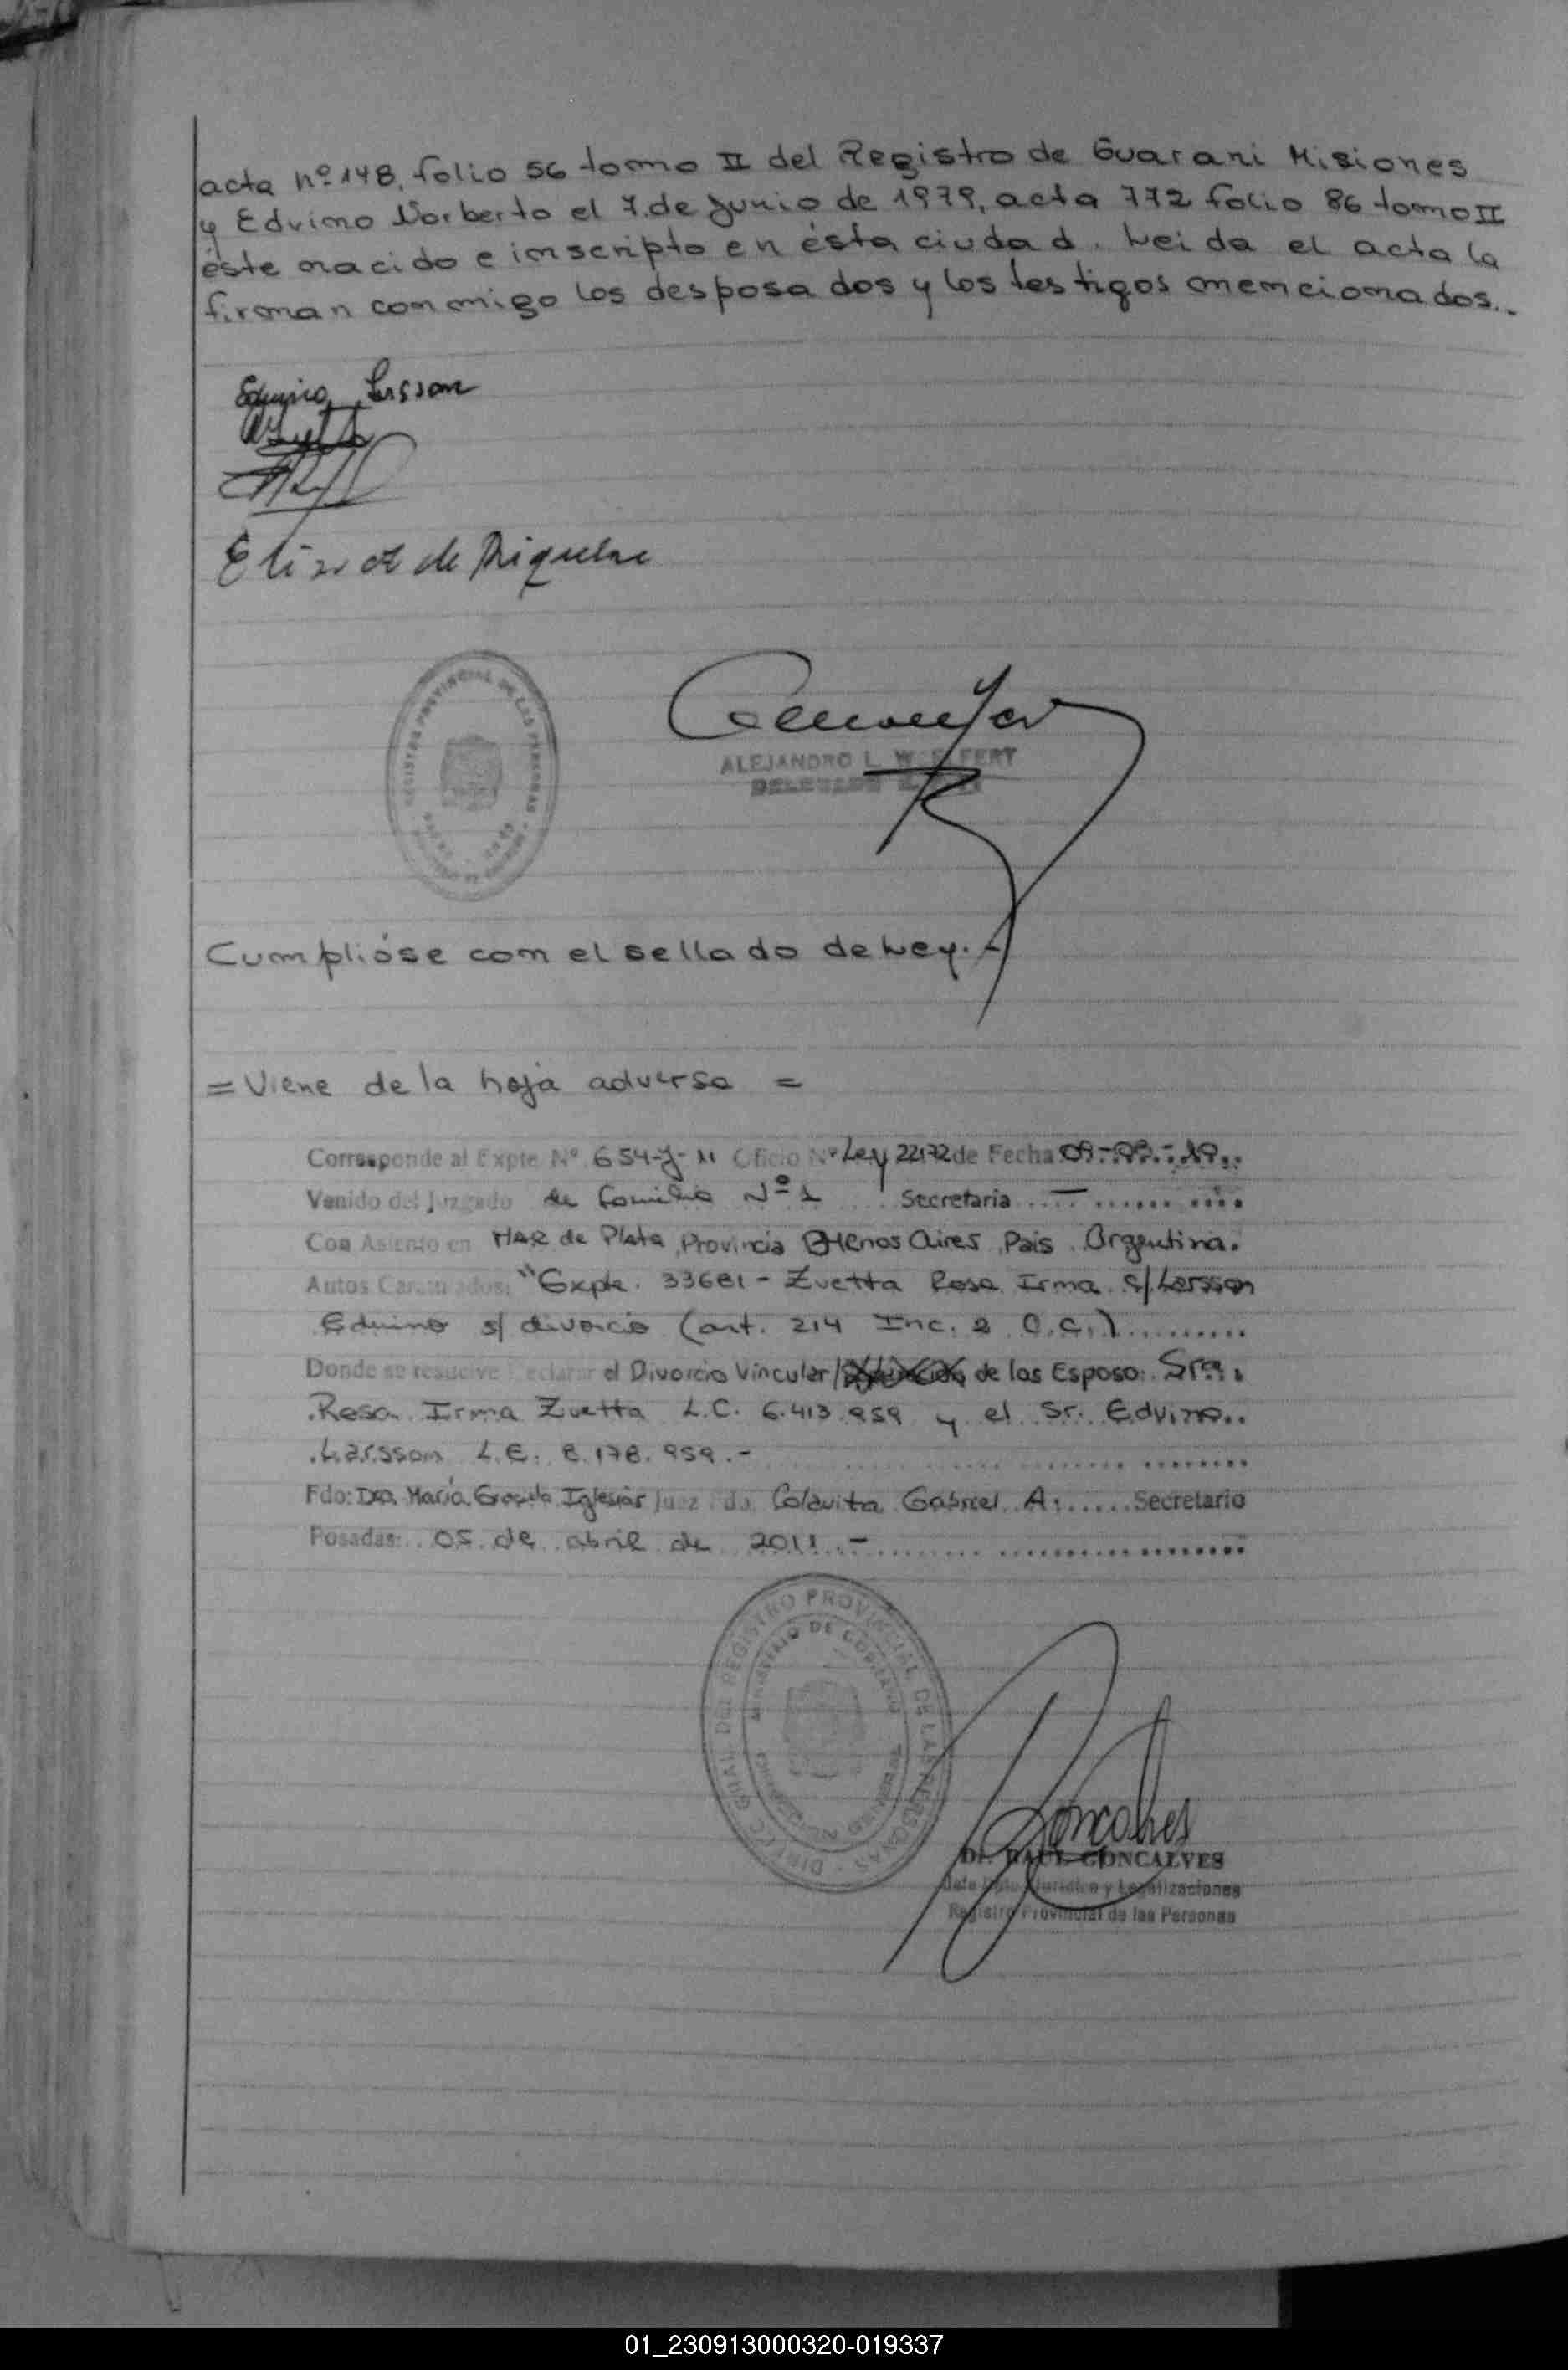 acta nº 148, folio 56 tomo II del Registro de Guarani Misiones
y Edvino Norberto el 7 de Junio de 1979, acta 772 folio 86 tomo II
éste nacido e inscripto en ésta ciudad. Leida el acta la
firman conmigo los desposados y los testigos mencionados.-
Edvino Larsson
de Riquelme
REGISTRO PROVINCIAL DE LAS PERSONAS
ALEJANDRO L. W. SEIFERT
DELEGADO
Cumplióse con el sellado de Ley.-
= Viene de la hoja adversa =
Corresponde al Expte Nº 654-J-11 Oficio Nº Ley 22172 de Fecha 09-09-10
Venido del Juzgado de Familia Nº 1 Secretaria —
Con Asiento en MAR de Plata, Provincia Buenos Aires, Pais Argentina.
Autos Caratulados: "Expte. 33681 - Zuetta Rosa Irma c/ Larsson
Edvino s/ divorcio (art. 214 Inc. 2 C.C.)
Donde se resuelve Declarar el Divorcio Vincular/ de los Esposo: Sra.
Rosa Irma Zuetta L.C. 6.413.959 y el Sr. Edvino
Larsson L.E. 8.178.959.-
Fdo: Dra. María Graciela Iglesias Juez Fdo. Colavita Gabriel A. Secretario
Posadas: 05 de abril de 2011.-
DIREC. GRAL. DEL REGISTRO PROVINCIAL DE LAS PERSONAS
MINISTERIO DE GOBIERNO
Goncalves
Dr. RAUL GONCALVES
Jefe Dpto. Jurídico y Legalizaciones
Registro Provincial de las Personas
01_230913000320-019337